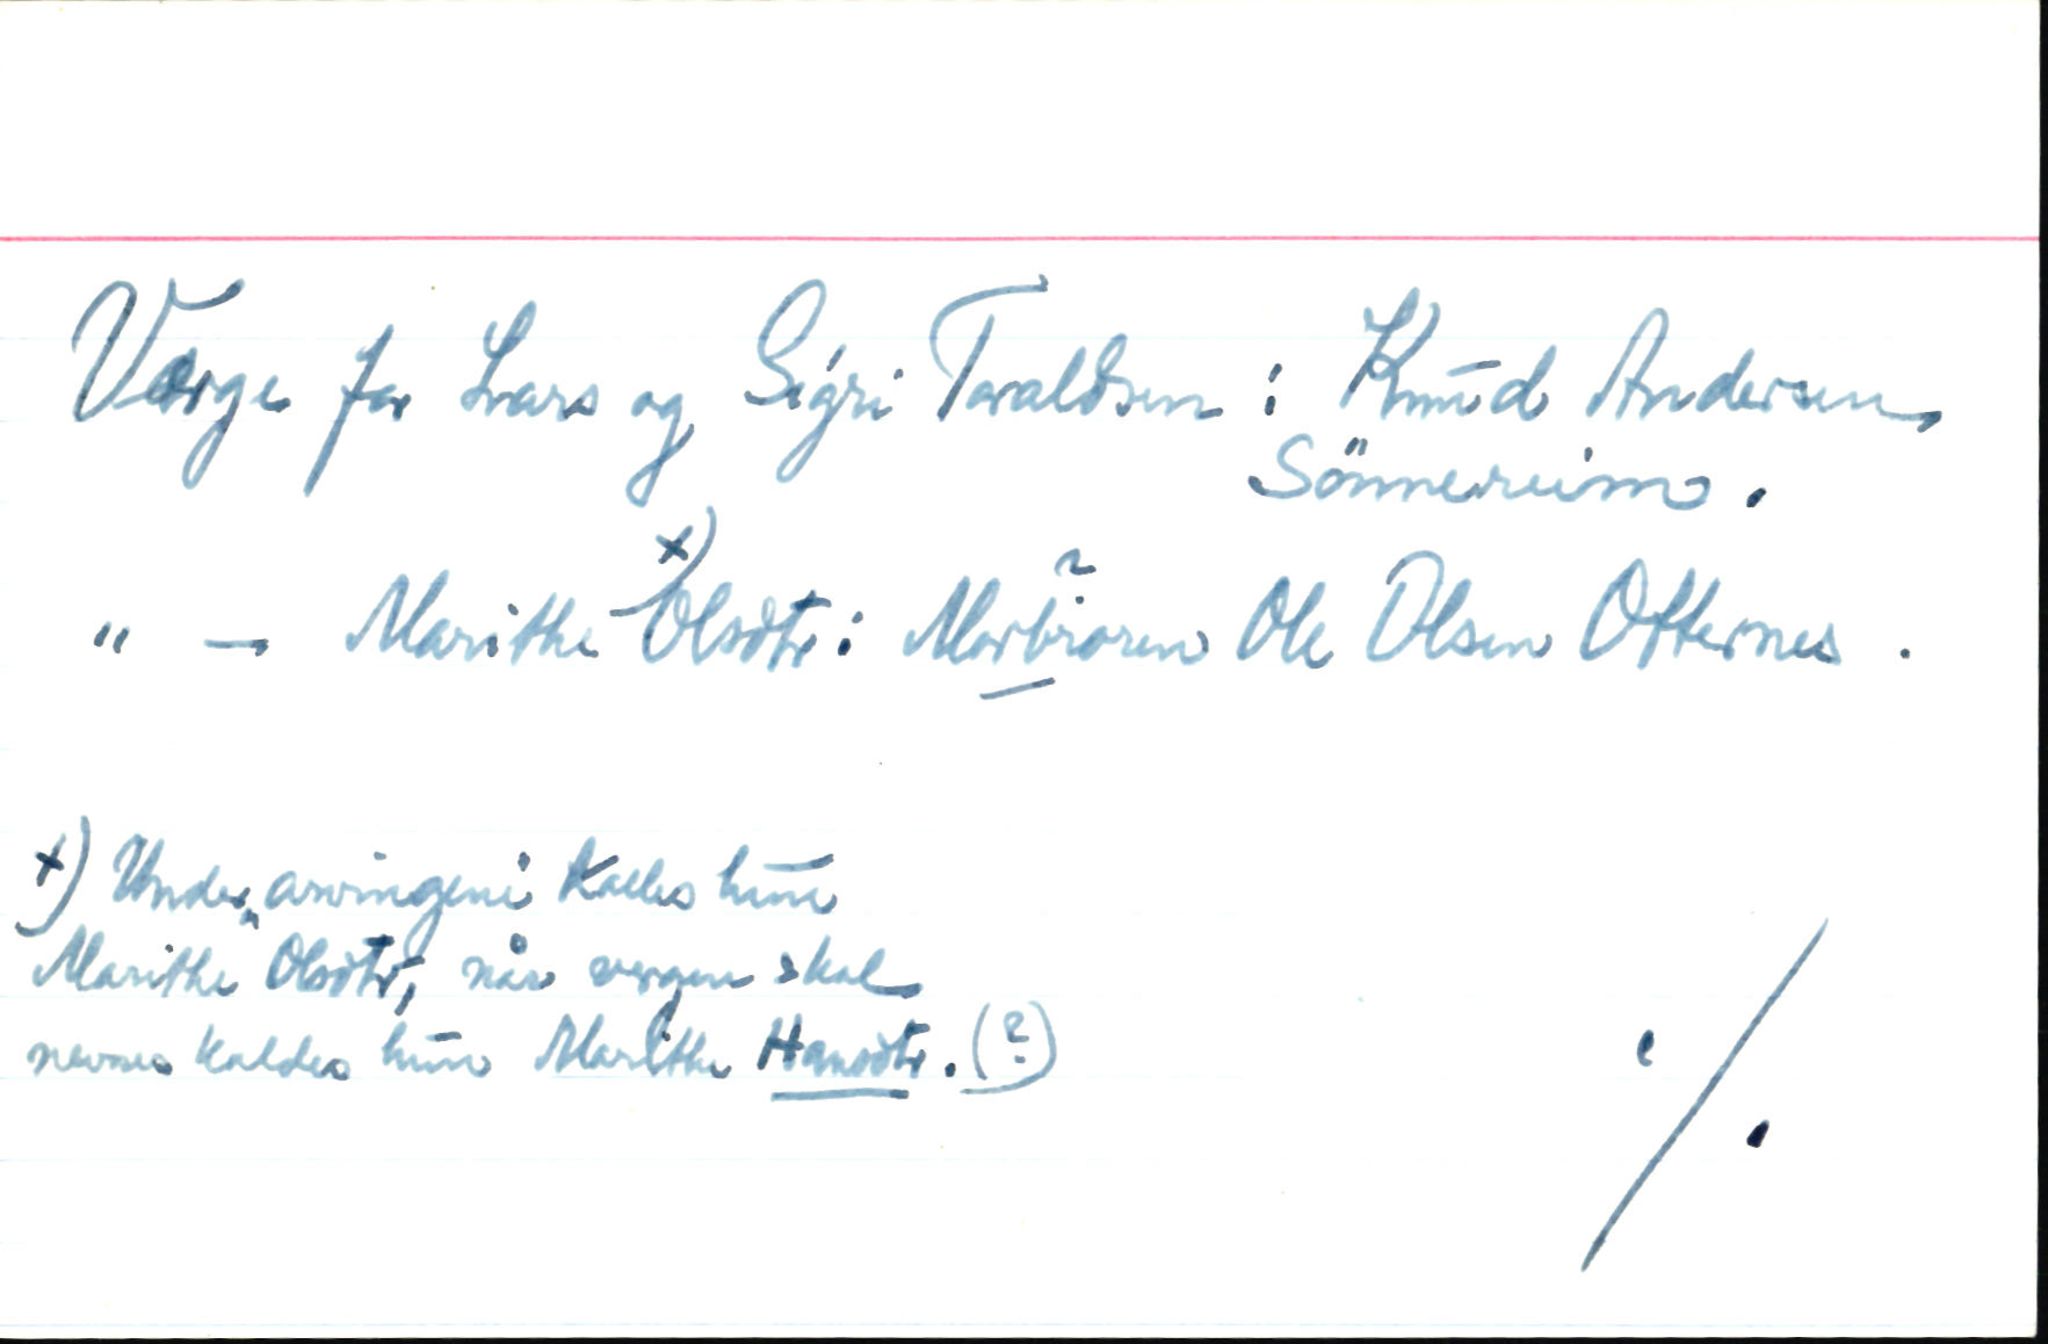 Værge for Lars og Sigri Taraldsen : Knud Andersen
Sönnereim .
" — Marithe x) Olsdtr : Morbroren ? Ole Olsen Otternes .
x) Under arvingene kalles hun
Marithe Olsdtr, når vergen skal
nevnes kaldes hun Marithe Hansdtr. (?)
./.